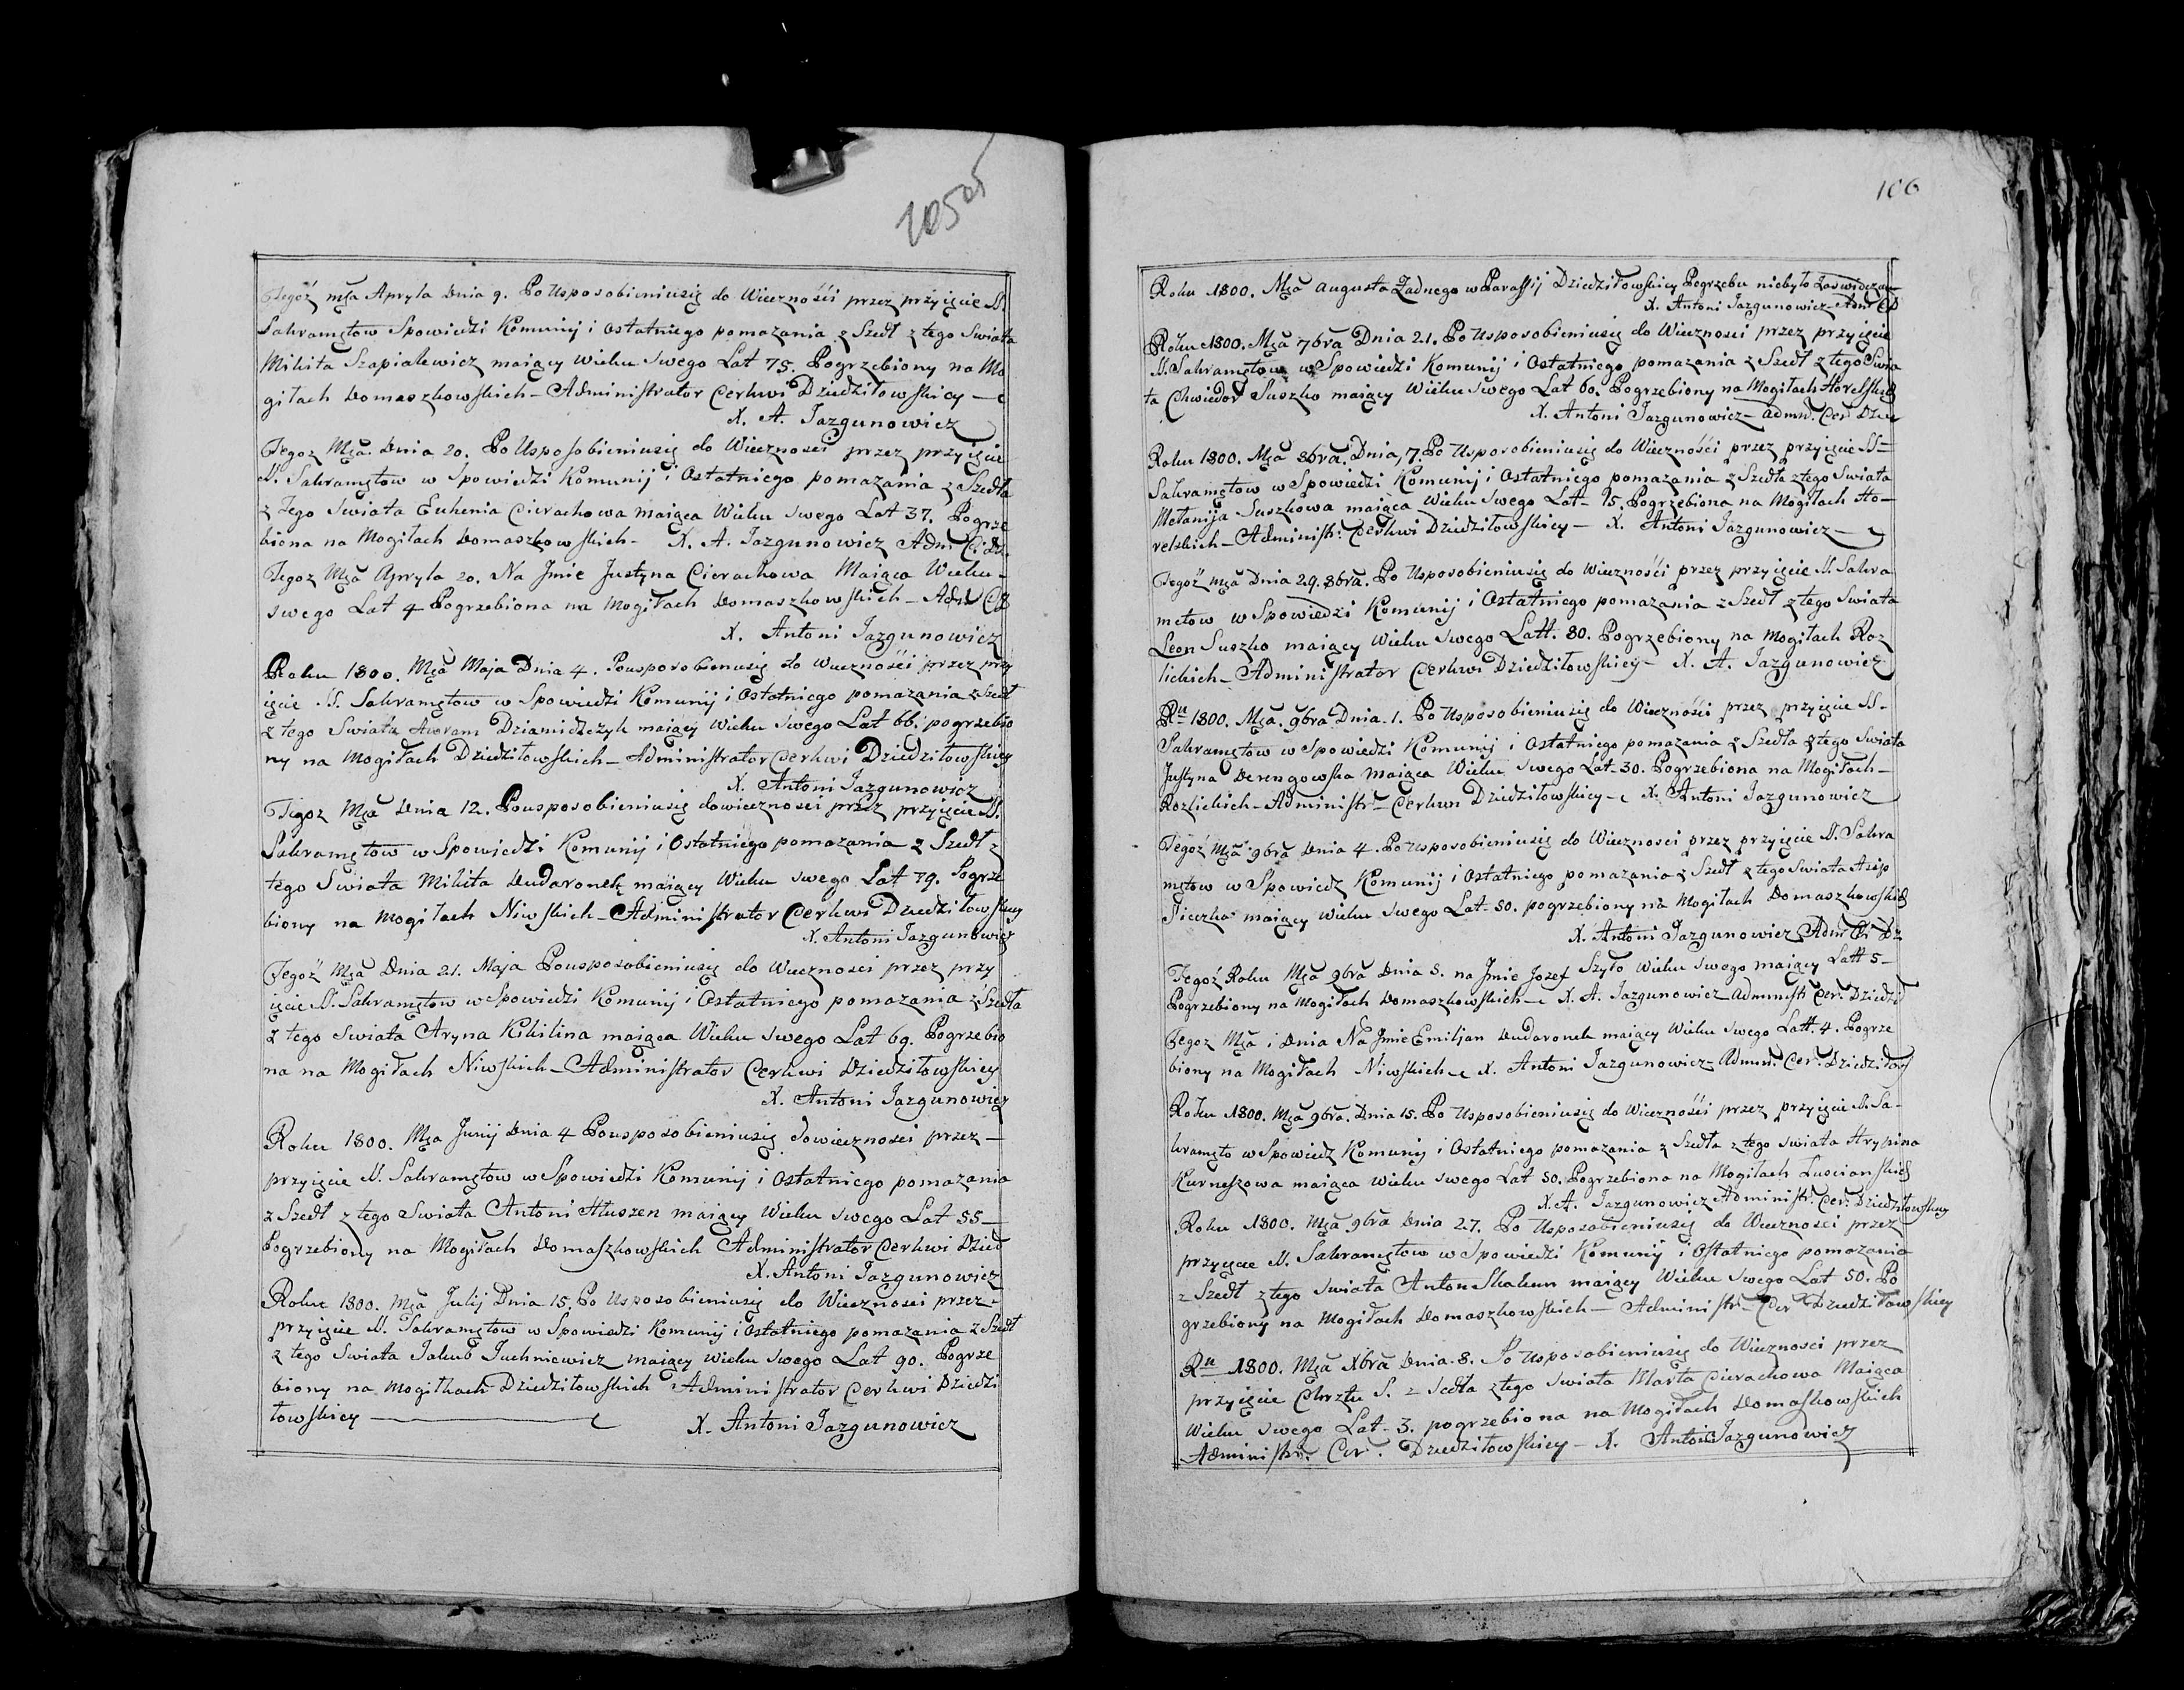 205 об
Tegoż mca Apryla Dnia 9. Po Usposobieniusię do Wieczności przez przyięcie SS.
Sakramętow Spowiedzi Komunij i Ostatniego pomazania z Szedł z tego Swiata
Mikita Szapialewicz maiący wieku swego Lat 75. Pogrzebiony na Mo
giłach Domaszkowskich – Administrator Cerkwi Dziedziłowskiey –
X. A. Jazgunowicz
Tegoz Mca. Dnia 20. Po Usposobieniusię do Wieznosci przez przyięcie
SS. Sakramętow w Spowiedzi Komunij i Ostatniego pomazania z Szedła
z Tego Swiata Euhenia Cierachowa maiąca Wieku swego Lat 37. Pogrze
biona na Mogiłach Domaszkowskich – X. A. Jazgunowicz Adm: C: Dz:
Tegoz Mca Apryla 20. Na Jmie Justyna Cierachowa Maiąca Wieku –
swego Lat 4 Pogrzebiona na Mogiłach Domaszkowskich – Adm C D
X. Antoni Jazgunowicz
Roku 1800. Mca Maja Dnia 4. Pousposobieniusię do Wieczności przez przy
ięcie SS. Sakramętow w Spowiedzi Komunij i Ostatniego pomazania z Szedł
z tego Swiata Awram Dziamidczyk maiący Wieku Swego Lat 66. pogrzebio
ny na Mogiłach Dziedziłowskich – Administrator Cerkwi Dziedziłowskiey
X. Antoni Jazgunowicz
Tegoz Mca Dnia 12. Pousposobieniusię dowiecznosci przez przyięcie SS.
Sakramętow w Spowiedzi Komunij i Ostatniego pomazania z Szedł z
tego Swiata Mikita Dudaronek maiący Wieku swego Lat 79. Pogrze
biony na Mogiłach Niwskich – Administrator Cerkwi Dziedziłowskiey
X. Antoni Jazgunowicz
Tegoż Mca Dnia 21. Maja Pousposobieniusię do Wiecznosci przez przy
ięcie SS. Sakramętow w Spowiedzi Komunij i Ostatniego pomazania z Szedła
z tego Swiata Aryna Kikilina maiąca Wieku Swego Lat 69. Pogrzebio
na na Mogiłach Niwskich – Administrator Cerkwi Dziedziłowskiey
X. Antoni Jazgunowicz
Roku 1800. Mca Junij Dnia 4 Pousposobieniusię dowiecznosci przez –
przyięcie SS. Sakramętow w Spowiedzi Komunij i Ostatniego pomazania
z Szedł z tego Swiata Antoni Hłuszen maiący Wieku swego Lat 55 –
Pogrzebiony na Mogiłach Domaszkowskich Administrator Cerkwi Dzied
X. Antoni Jazgunowicz
Roku 1800. Mca Julij Dnia 15. Po Usposobieniusię do Wiecznosci przez –
przyięcie SS. Sakramętow w Spowiedzi Komunij i Ostatniego pomazania z Szedł
z tego Swiata Jakub Juchniewicz maiący wieku Swego Lat 90. Pogrze
biony na Mogiłkach Dziedziłowskich Administrator Cerkwi Dziedzi
łowskiey – X. Antoni Jazgunowicz
106
Roku 1800. Mca Augusta Żadnego w Parafij Dziedziłowskiey Pogrzebu niebyło Zaswiadczam
X. Antoni Jazgunowicz – Adm. C D
Roku 1800. Mca 7bra Dnia 21. Po Usposobieniusię do Wiecznosci przez przyięcie
SS. Sakramętow w Spowiedzi Komunij i Ostatniego pomazania z Szedł z tego Swia
ta Chwiedor Suszko maiący Wieku Swego Lat 60. Pogrzebiony na Mogiłach Horelskich
X. Antoni Jazgunowicz – Admn. Cer. Dzie
Roku 1800. Mca 8bra. Dnia, 7. Po Usposobieniusię do Wieczności przez przyięcie SS –
Sakramętow w Spowiedzi Komunij i Ostatniego pomazania z Szedła z tego Swiata
Metanija Suszkowa maiąca Wieku Swego Lat – 15. Pogrzebiona na Mogiłach Ho –
relskich – Administr: Cerkwi Dziedziłowskiey – X. Antoni Jazgunowicz –
Tegoż mca Dnia 29. 8bra. Po Usposobieniusię do Wieczności przez przyięcie SS. Sakra
metow w Spowiedzi Komunij i Ostatniego pomazania z Szedł z tego Swiata
Leon Suszko maiący Wieku Swego Latt. 80. Pogrzebiony na Mogiłach Roz
lickich – Administrator Cerkwi Dziedziłowskiey – X. A. Jazgunowicz
Ru 1800. Mca. 9bra Dnia. 1. Po Usposobieniusię do Wieczności przez przyięcie SS –
Sakramętow w Spowiedzi Komunij i Ostatniego pomazania z Szedła z tego Swiata
Justyna Derengowska Maiąca Wieku Swego Lat – 30. Pogrzebiona na Mogiłach –
Rozlickich – Administr – Cerkwi Dziedziłowskiey – X. Antoni Jazgunowicz
Tegoż Mca 9bra Dnia 4. Po Usposobieniusię do Wiecznosci przez przyięcie SS. Sakra
mętow w Spowiedz Komunij i Ostatniego pomazania z Szedł z tego Swiata Asip
Siczko maiący wieku Swego Lat – 80. pogrzebiony na Mogiłach Domaszkowskich
X. Antoni Jazgunowicz Adm C: Dz
Tegoż Roku Mca 9bra Dnia 5. na Jmie Jozef Szyło Wieku Swego maiący Latt 5 –
Pogrzebiony na Mogiłach Domaszkowskich – X. A. Jazgunowicz Administ Cer. Dziedził
Tegoz Mca i Dnia Na Jmie Emiljan Dudaronek maiący Wieku Swego Latt. 4. Pogrze
biony na Mogiłach Niwskich – X. Antoni Jazgunowicz Admin. Cer. Dziedziłow
Roku 1800. Mca 9bra. Dnia 15. Po Usposobieniusię do Wieczności przez przyięcie SS. Sa –
kramęto w Spowiedz Komunij i Ostatniego pomazania z Szedła z tego Swiata Hrypina
Kurneszowa maiąca Wieku Swego Lat 50. Pogrzebiona na Mogiłach Luscianskich
X. A. Jazgunowicz Administr. Cer. Dziedziłowskiey
Roku 1800. Mca 9bra Dnia 27. Po Usposobieniusię do Wiecznosci przez
przyięcie SS. Sakramętow w Spowiedzi Komunij i Ostatniego pomazania
z Szedł z tego Swiata Anton Skakun maiący Wieku Swego Lat 50. Po
grzebiony na Mogiłach Domaszkowskich – Administr – Cer Dziedziłowskiey
Ru 1800. Mca Xbra Dnia. 8. Po Usposobieniusię do Wiecznosci przez
przyięcie Chrztu S. z Sedła z tego Swiata Marta Cierachowa Maiąca
Wieku Swego Lat – 3. pogrzebiona na Mogiłach Domaskowskich
Administr. Cer. Dziedziłowskiey – X. Antoni Jazgunowicz